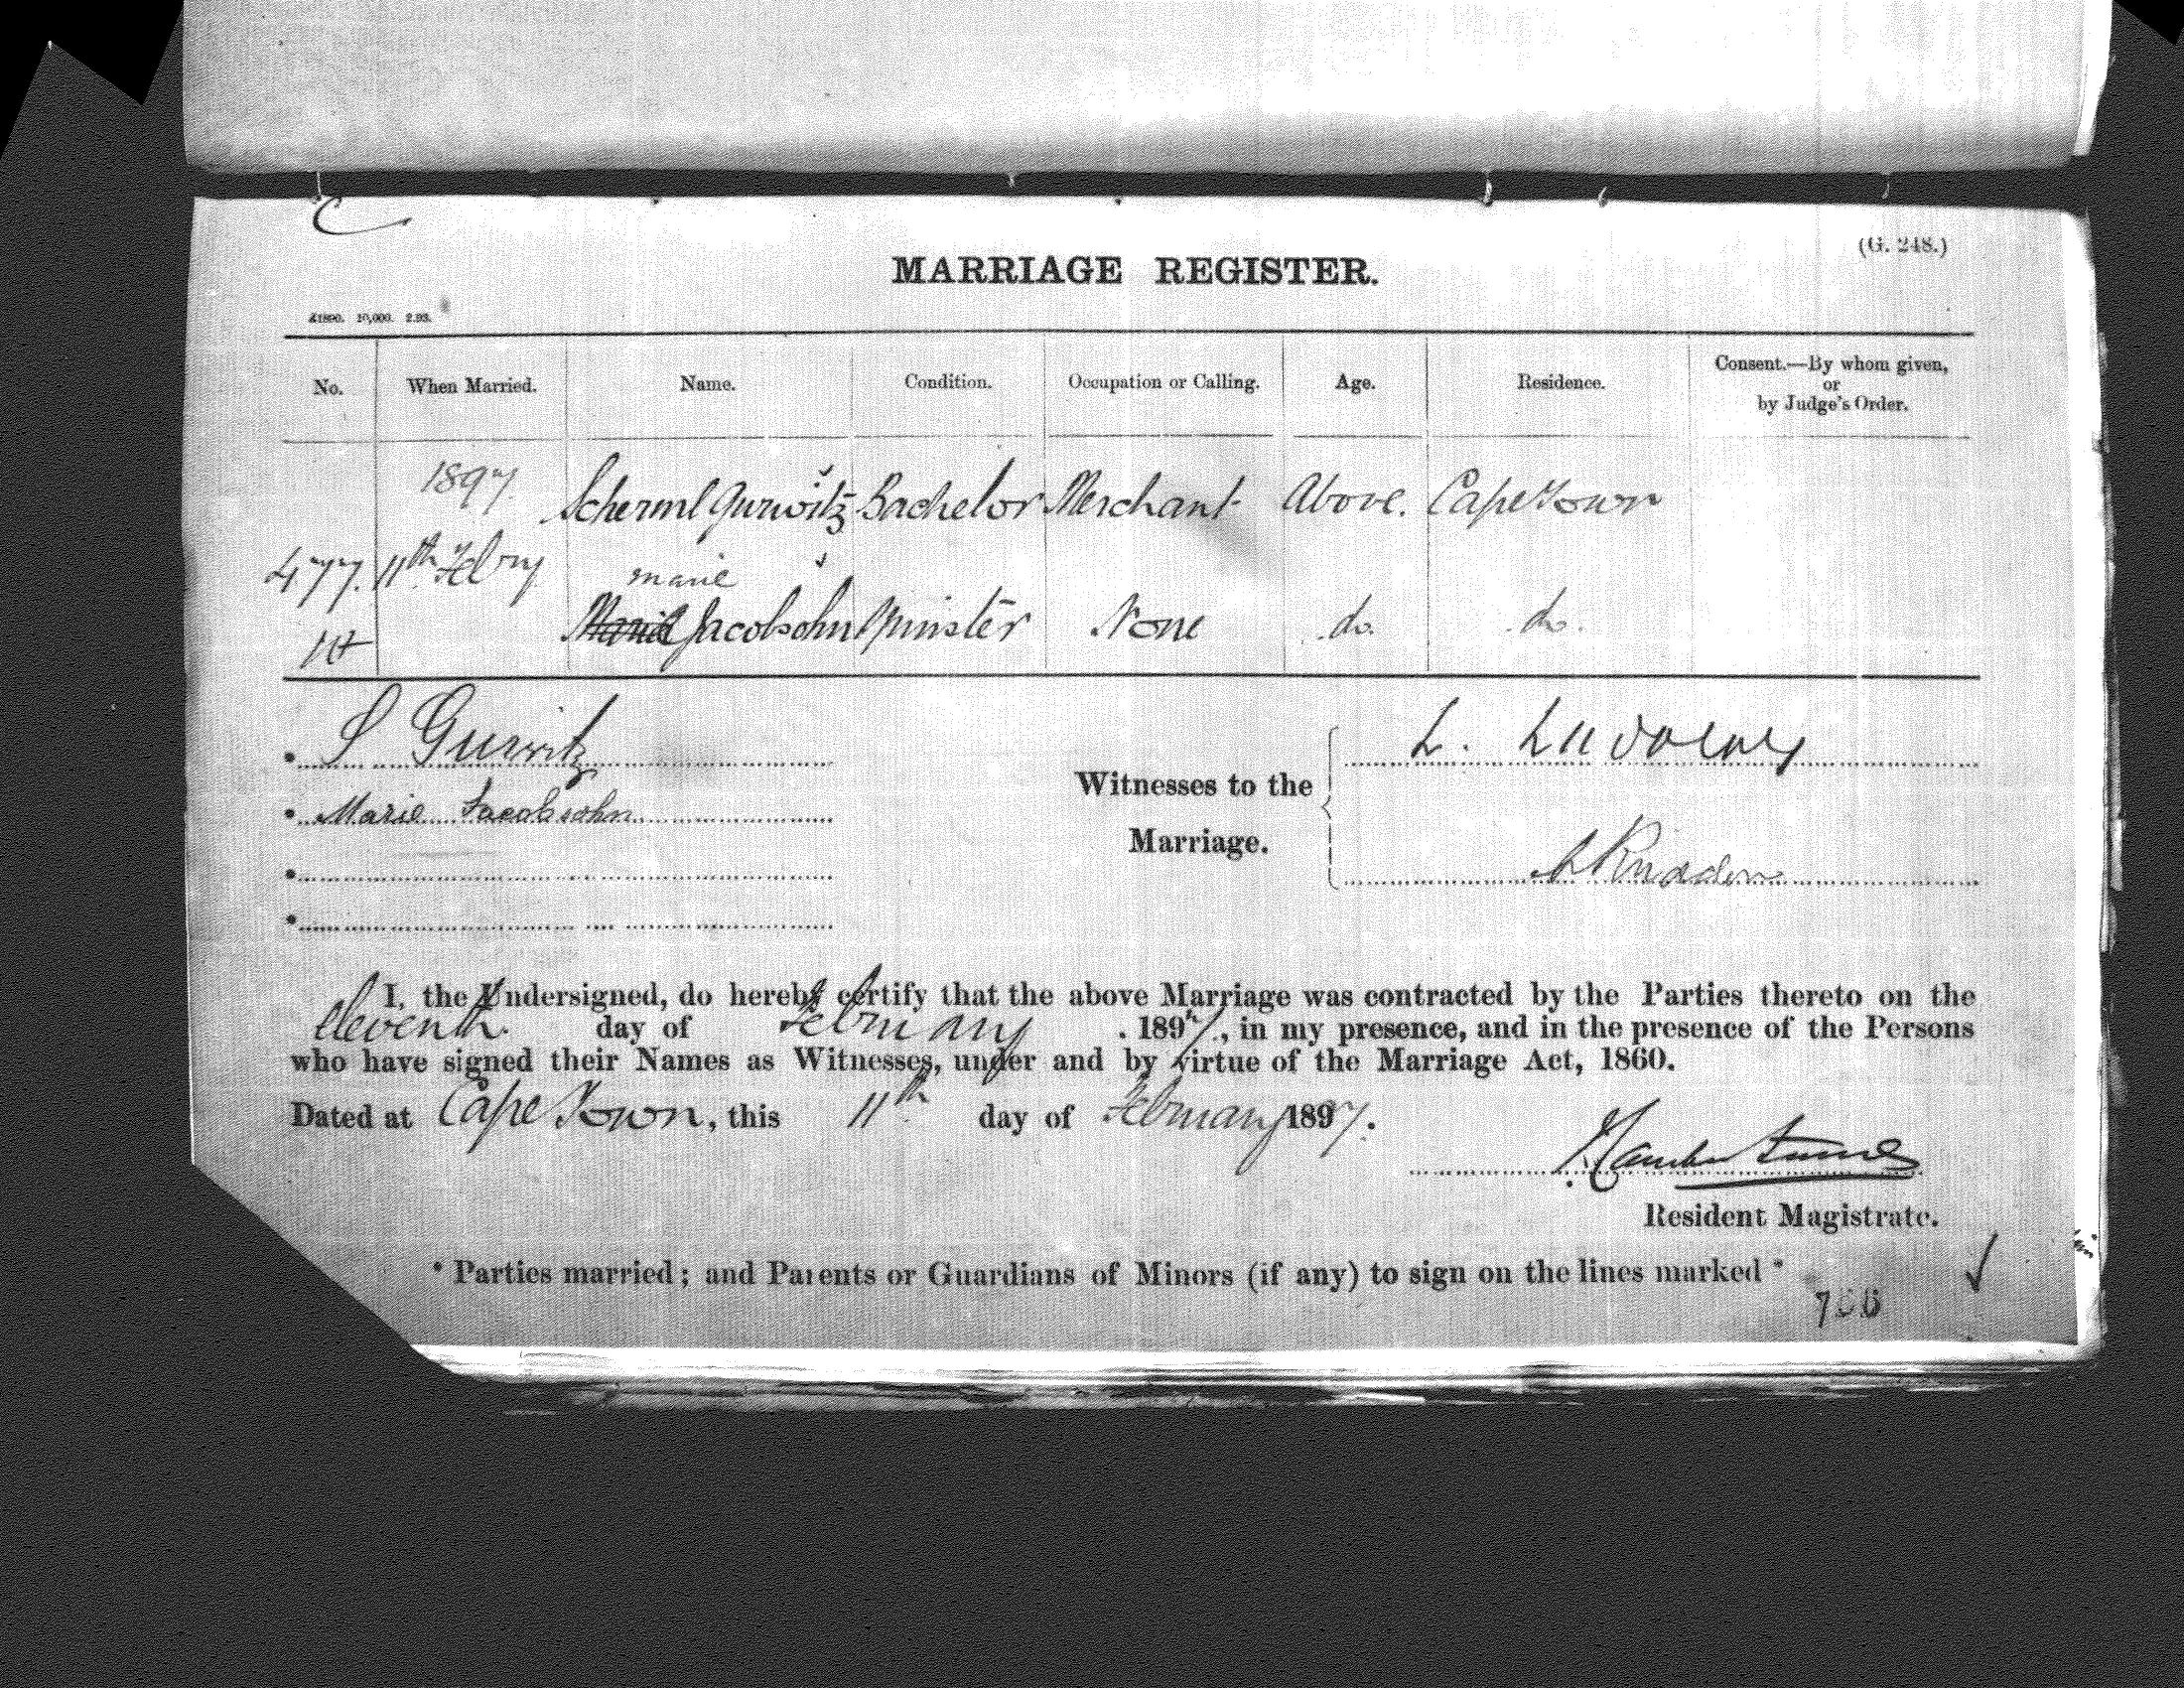 (G. 248.)
MARRIAGE REGISTER.
No. When Married. Name. Condition. Occupation or Calling. Age. Residence. Consent.—By whom given, or by Judge's Order.
1897 Gurwitz Bachelor Merchant Above. Cape Town
477. 11th Febry marie
Marie Jacobsohn Spinster None do. do.
S Gurwitz
Marie Jacobsohn
Witnesses to the
Marriage.
L.
I, the Undersigned, do hereby certify that the above Marriage was contracted by the Parties thereto on the
eleventh day of February . 1897, in my presence, and in the presence of the Persons
who have signed their Names as Witnesses, under and by virtue of the Marriage Act, 1860.
Dated at Cape Town, this 11th day of February 1897.
Resident Magistrate.
* Parties married; and Parents or Guardians of Minors (if any) to sign on the lines marked *